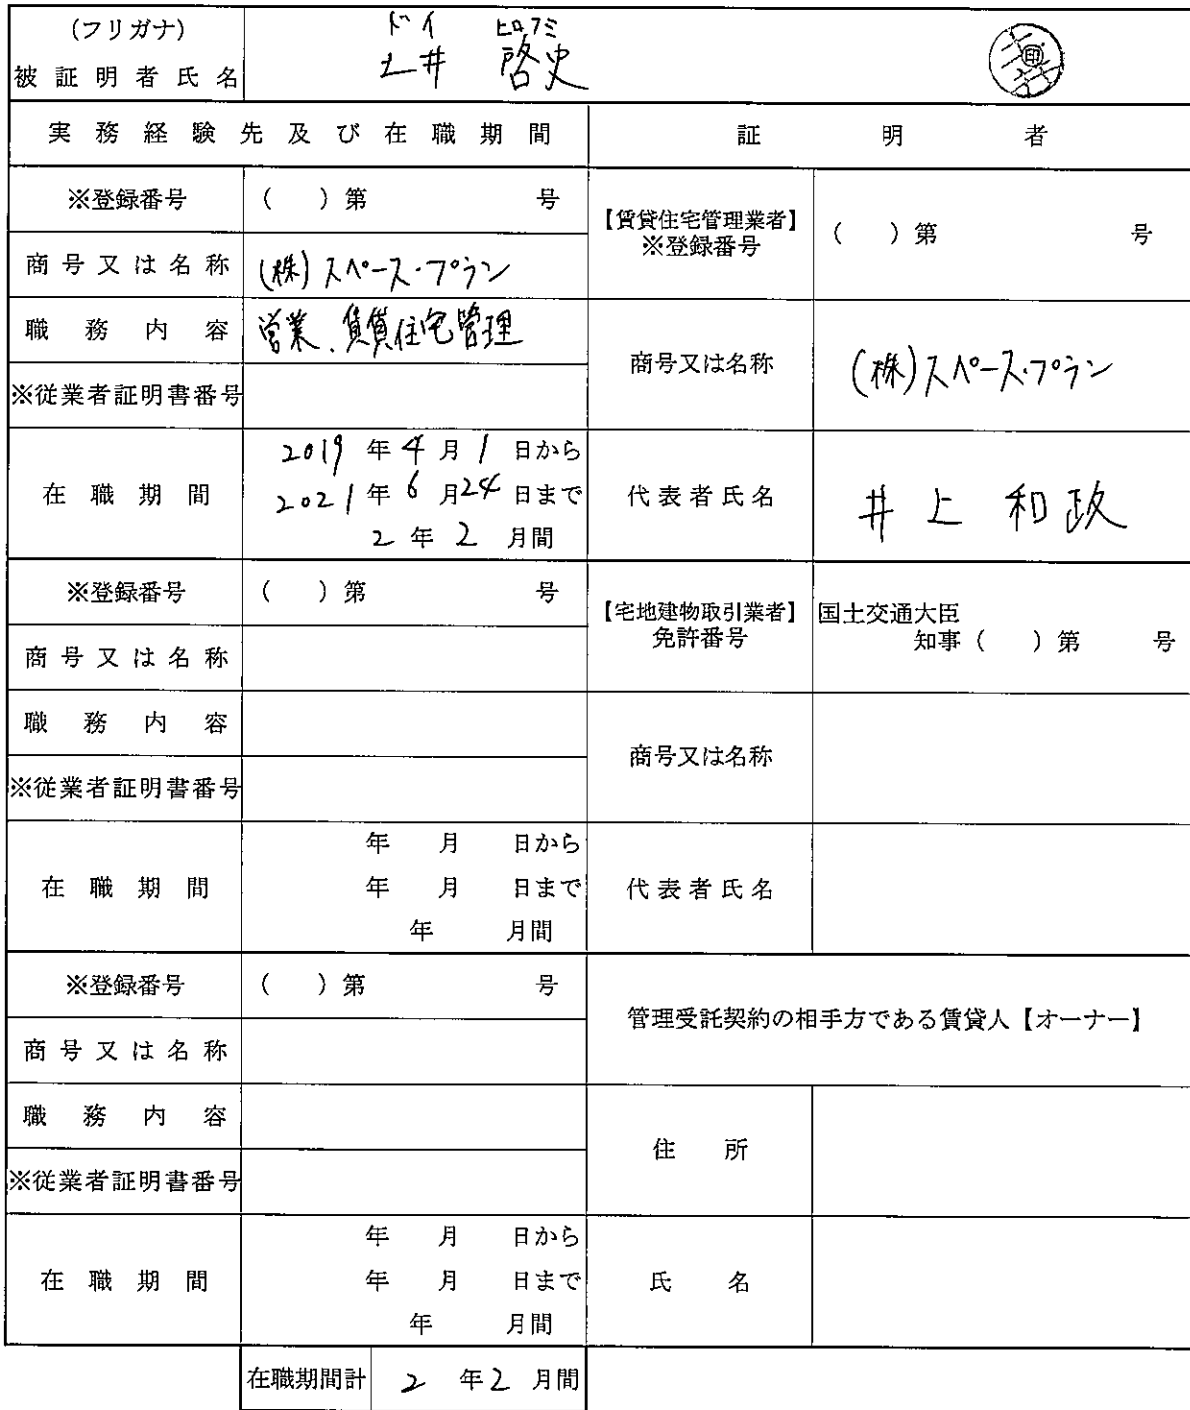 (フリガナ) ドイ ヒロフミ
被証明者氏名 土井 啓史 印
実務経験先及び在職期間 証明者
※登録番号 ( ) 第 号
【賃貸住宅管理業者】
※登録番号 ( ) 第 号
商号又は名称 (株)スペース・プラン
職務内容 営業、賃貸住宅管理
商号又は名称 (株)スペース・プラン
※従業者証明書番号
在職期間
2019年4月1日から
2021年6月24日まで
2年2月間
代表者氏名 井上和政
※登録番号 ( ) 第 号
【宅地建物取引業者】 国土交通大臣
免許番号 知事 ( ) 第 号
商号又は名称
職務内容
商号又は名称
※従業者証明書番号
在職期間
年 月 日から
年 月 日まで
年 月間
代表者氏名
※登録番号 ( ) 第 号
管理受託契約の相手方である賃貸人【オーナー】
商号又は名称
職務内容
住所
※従業者証明書番号
在職期間
年 月 日から
年 月 日まで
年 月間
氏名
在職期間計 2年2月間